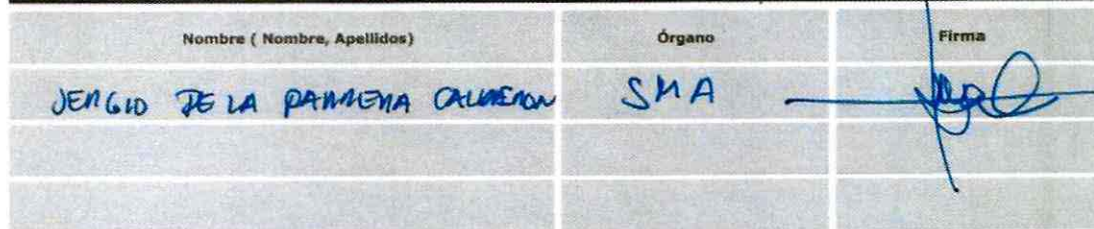 Nombre ( Nombre, Apellidos) Órgano Firma
SERGIO DE LA BARRERA CALDERON SMA